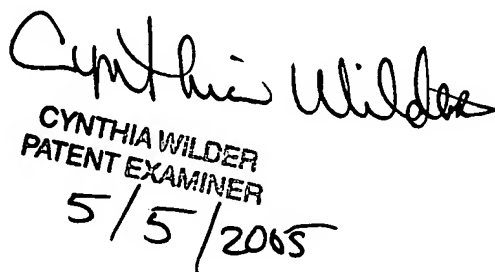 Cynthia Wilder
CYNTHIA WILDER
PATENT EXAMINER
5/5/2005